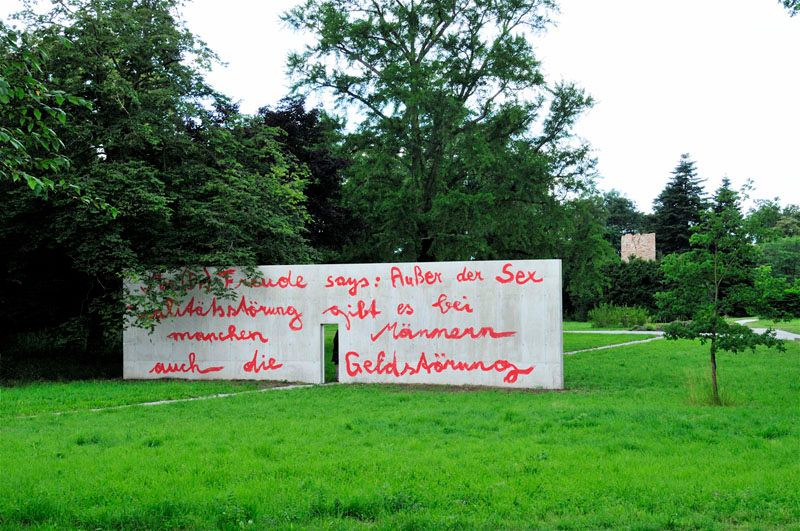 Freude says: Außer der Sex
ualitätsstörung gibt es bei
manchen Männern
auch die Geldstörung